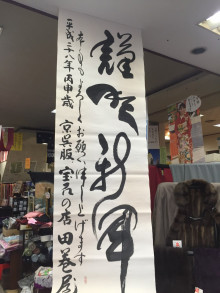 謹賀新年
本年もよろしくお願い申し上げます
平成二八年丙申歳 京呉服 宝石の店 田巻屋